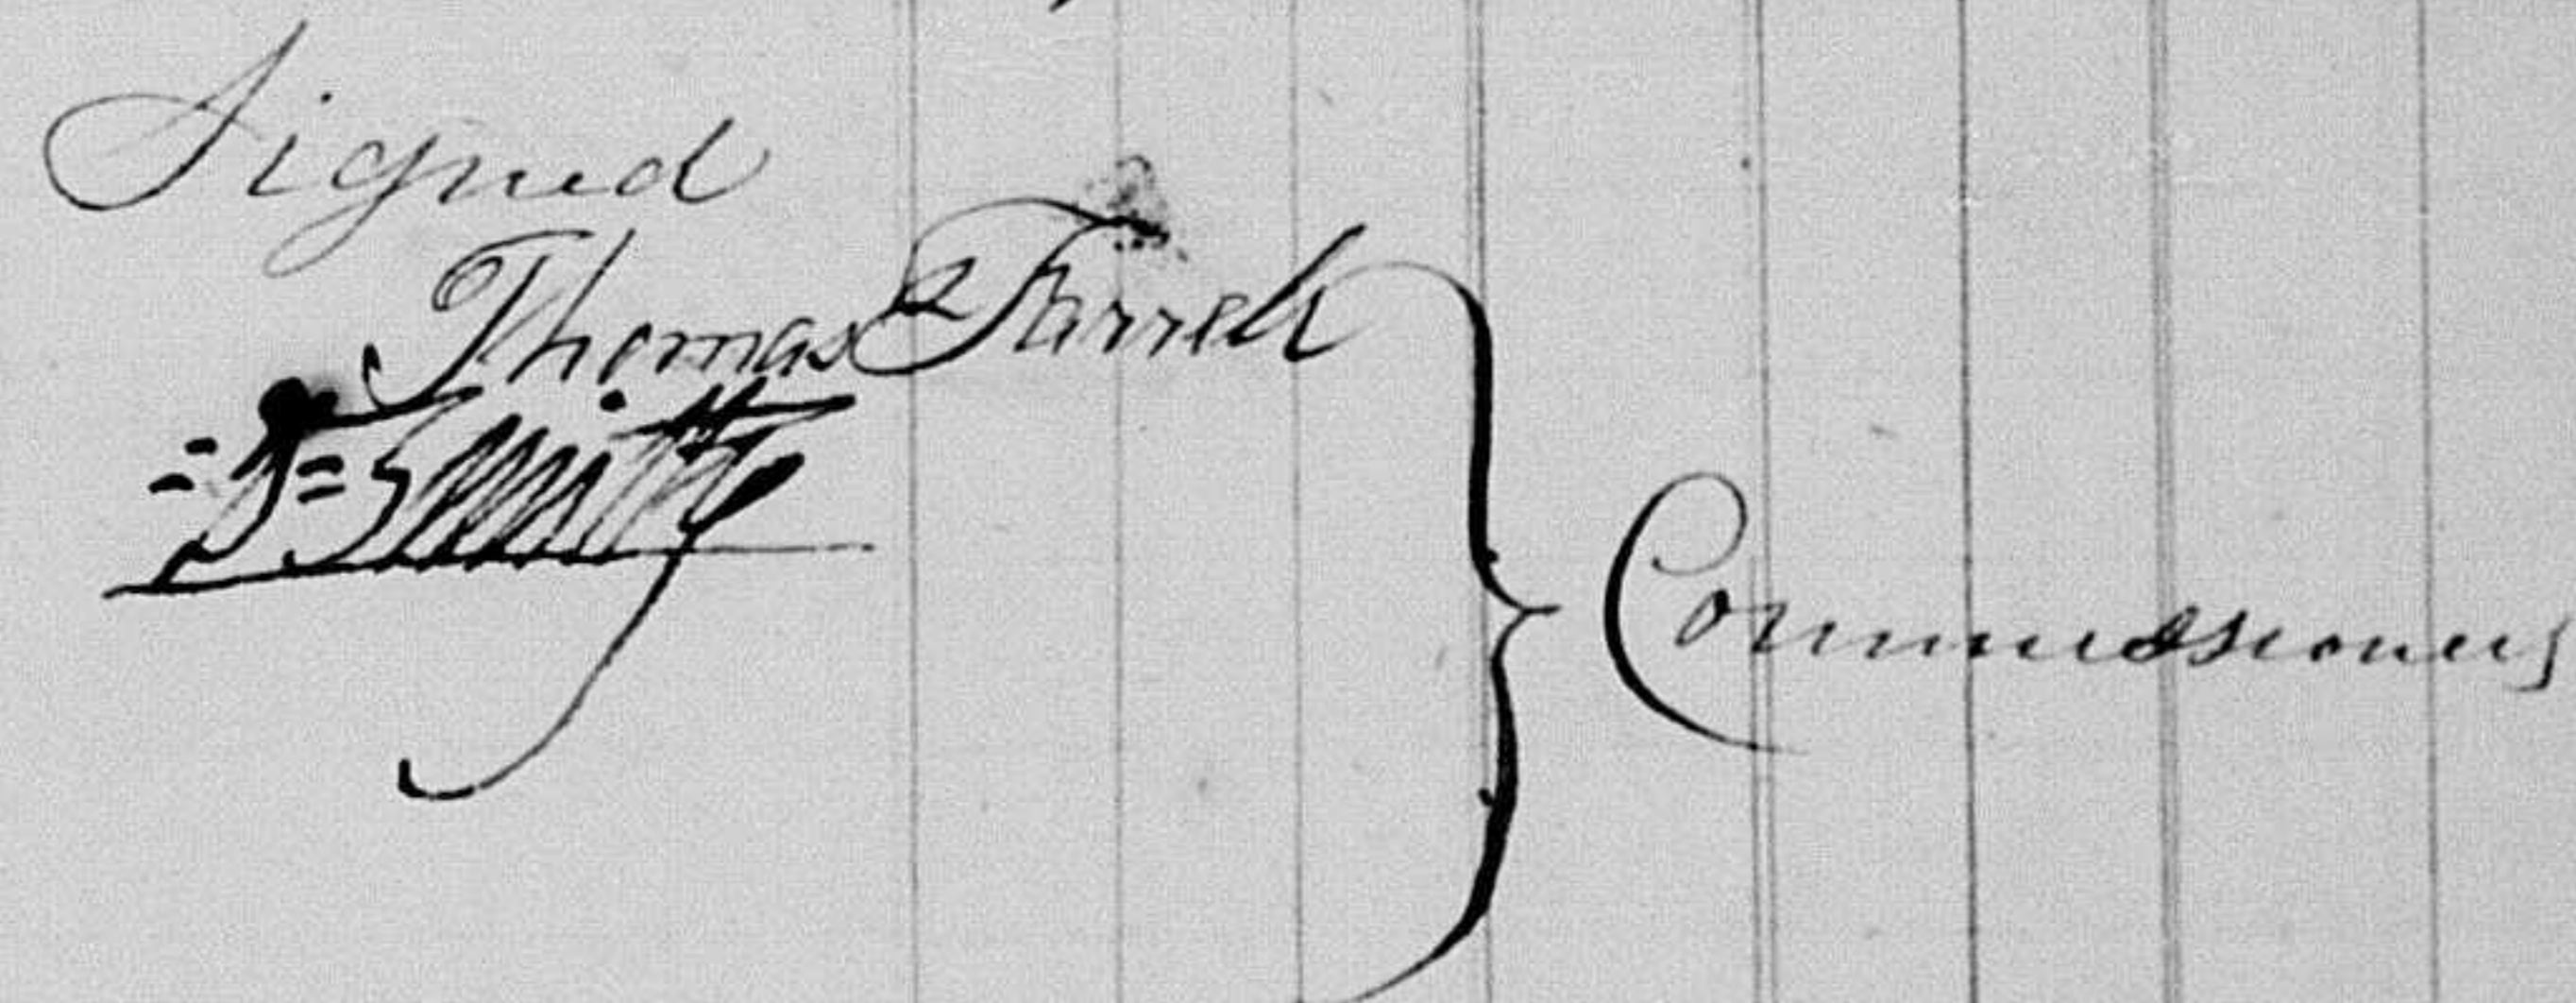 Signed
Thomas Farrell
=J= Smith
Commissioners